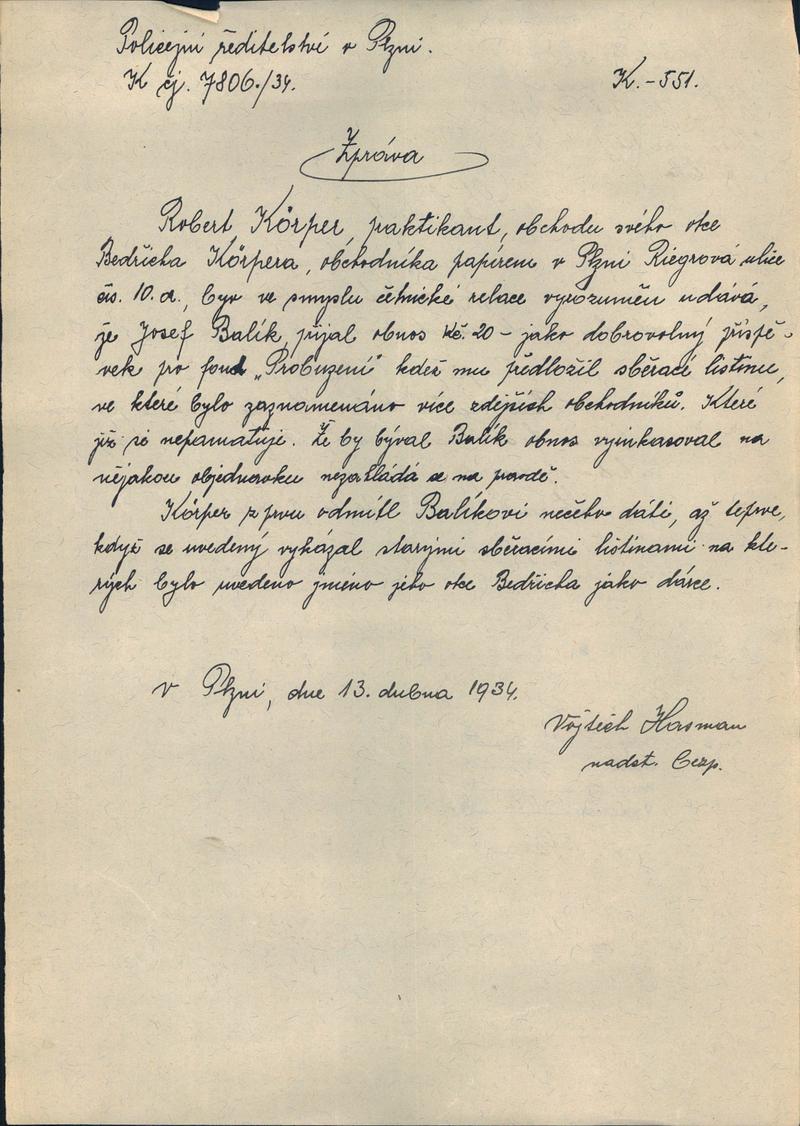 Policejní ředitelství v Plzni.
K čj. 7806./34.
K.-551.
Zpráva
Robert Körper, paktikant, obchodu svého otce
Bedřicha Körpera, obchodníka papírem v Plzni Riegrová ulice
čís. 10. a., byv ve smyslu četnické relace vyrozuměn udává,
že Josef Balík, přijal obnos Kč. 20 - jako dobrovolný příspě-
vek pro fond „Probuzení" když mu předložil sběrací listinu,
ve které bylo zaznamenáno více zdejších obchodníků. Které
již si nepamatuje. Že by býval Balík obnos vyinkasoval na
nějakou objednavku nezakládá se na pravdě.
Körper z prvu odmítl Balíkovi nečeho dáti, až teprve,
když se uvedený vykázal starými sběracími listinami na kte-
rých bylo uvedeno jméno jeho otce Bedřicha jako dárce.
v Plzni, dne 13. dubna 1934.
Vojtěch Hasman
nadst. bezp.